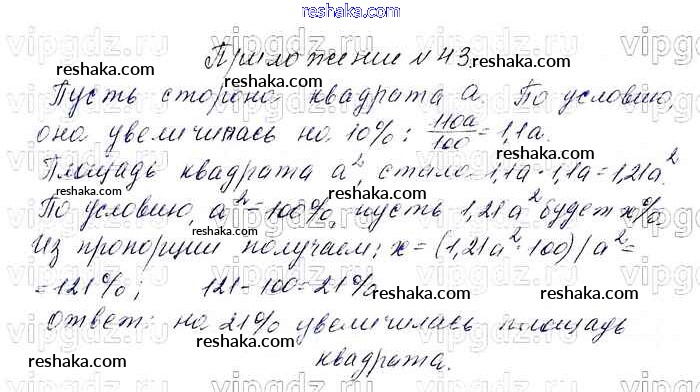 reshaka.com
Приложение №43.
Пусть сторона квадрата a. По условию,
она увеличилась на 10%: 110a/100 = 1,1a.
Площадь квадрата a², стало 1,1a·1,1a=1,21a².
По условию, a²=100%, пусть 1,21a² будет x%.
Из пропорции получаем: x=(1,21a²·100)/a²=
=121%; 121-100=21%
Ответ: на 21% увеличилась площадь
квадрата.